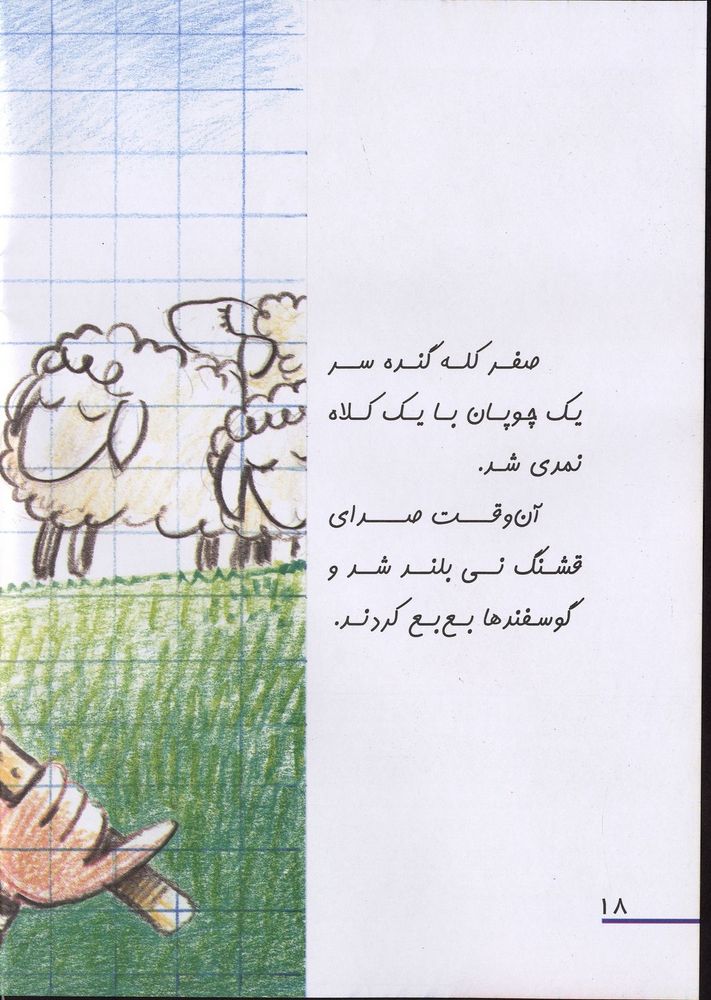 صفر کله گنده سر
یک چوپان با یک کلاه
نمدی شد.
آن‌وقت صدای
قشنگ نی بلند شد و
گوسفندها بع‌بع کردند.
۱۸